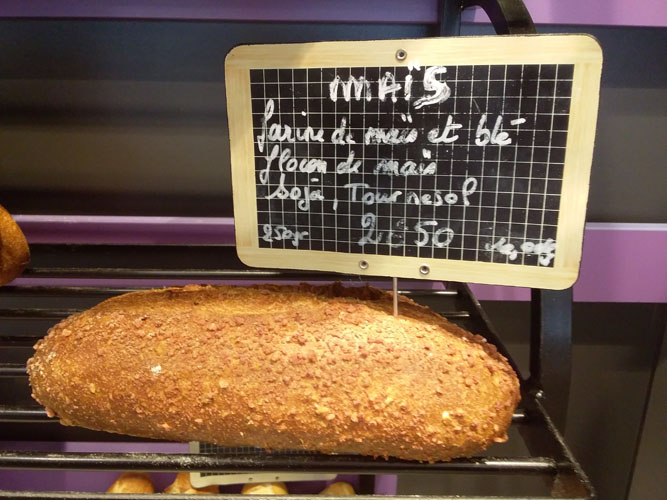 MAÏS
farine de maïs et blé
flocon de maïs
soja, Tournesol
250gr 2€50